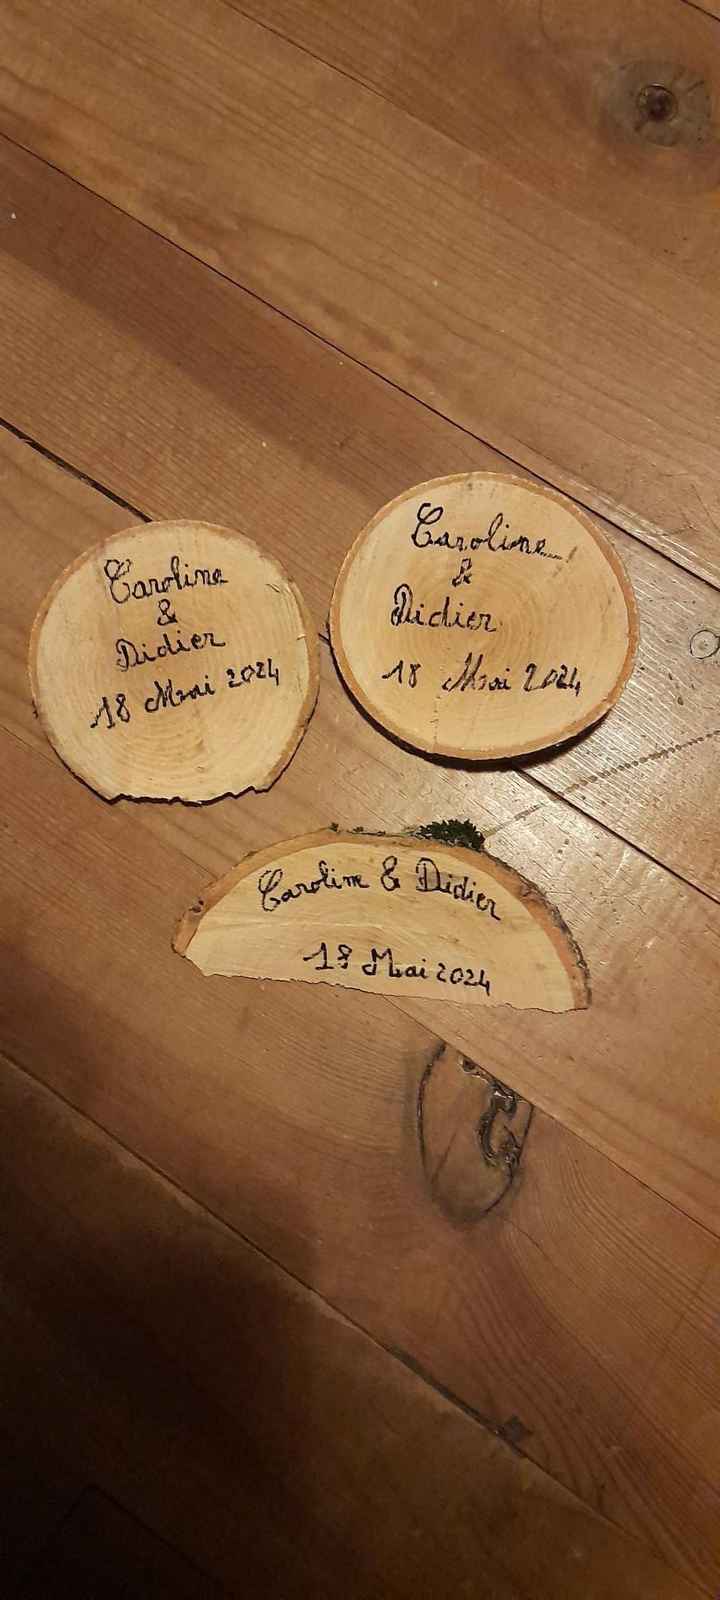 Caroline
&
Didier
18 Mai 2024
Caroline
&
Didier
18 Mai 2024
Caroline & Didier
18 Mai 2024